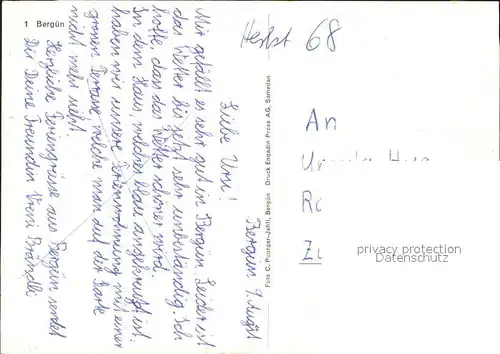 1 Bergün
Herbst 68
Bergün 9. August
Liebe Ursi!
Mir gefällt es sehr gut in Bergün. Leider ist
das Wetter bis jetzt sehr unbeständig. Ich
hoffe, dass das Wetter schöner wird.
In dem Haus, welches blau angekreuzt ist,
haben wir unsere Ferienwohnung mit einer
grossen Terrasse, welche man auf der Karte
nicht mehr sieht.
Herzliche Feriengrüsse aus Bergün sendet
Dir Deine Freundin Vreni
Foto C. Bergün Druck Engadin Press AG, Samedan
An
privacy protection
Datenschutz